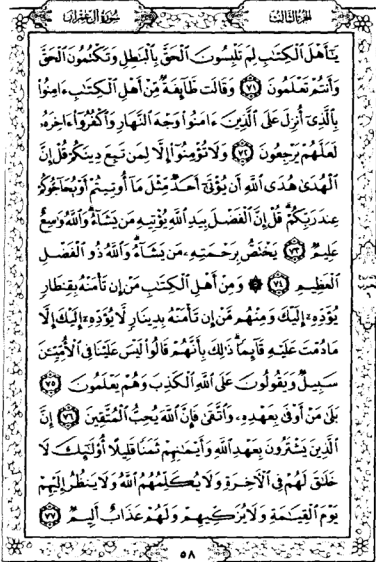 الجزء الثالث سورة آل عمران
يَٰٓأَهْلَ ٱلْكِتَٰبِ لِمَ تَلْبِسُونَ ٱلْحَقَّ بِٱلْبَٰطِلِ وَتَكْتُمُونَ ٱلْحَقَّ
وَأَنتُمْ تَعْلَمُونَ ٧١ وَقَالَت طَّآئِفَةٌ مِّنْ أَهْلِ ٱلْكِتَٰبِ ءَامِنُوا۟
بِٱلَّذِىٓ أُنزِلَ عَلَى ٱلَّذِينَ ءَامَنُوا۟ وَجْهَ ٱلنَّهَارِ وَٱكْفُرُوٓا۟ ءَاخِرَهُۥ
لَعَلَّهُمْ يَرْجِعُونَ ٧٢ وَلَا تُؤْمِنُوٓا۟ إِلَّا لِمَن تَبِعَ دِينَكُمْ قُلْ إِنَّ
ٱلْهُدَىٰ هُدَى ٱللَّهِ أَن يُؤْتَىٰٓ أَحَدٌ مِّثْلَ مَآ أُوتِيتُمْ أَوْ يُحَآجُّوكُمْ
عِندَ رَبِّكُمْ قُلْ إِنَّ ٱلْفَضْلَ بِيَدِ ٱللَّهِ يُؤْتِيهِ مَن يَشَآءُ وَٱللَّهُ وَٰسِعٌ
عَلِيمٌ ٧٣ يَخْتَصُّ بِرَحْمَتِهِۦ مَن يَشَآءُ وَٱللَّهُ ذُو ٱلْفَضْلِ
ٱلْعَظِيمِ ٧٤ ۞ وَمِنْ أَهْلِ ٱلْكِتَٰبِ مَنْ إِن تَأْمَنْهُ بِقِنطَارٍ
يُؤَدِّهِۦٓ إِلَيْكَ وَمِنْهُم مَّنْ إِن تَأْمَنْهُ بِدِينَارٍ لَّا يُؤَدِّهِۦٓ إِلَيْكَ إِلَّا
مَا دُمْتَ عَلَيْهِ قَآئِمًا ذَٰلِكَ بِأَنَّهُمْ قَالُوا۟ لَيْسَ عَلَيْنَا فِى ٱلْأُمِّيِّـۧنَ
سَبِيلٌ وَيَقُولُونَ عَلَى ٱللَّهِ ٱلْكَذِبَ وَهُمْ يَعْلَمُونَ ٧٥
بَلَىٰ مَنْ أَوْفَىٰ بِعَهْدِهِۦ وَٱتَّقَىٰ فَإِنَّ ٱللَّهَ يُحِبُّ ٱلْمُتَّقِينَ ٧٦ إِنَّ
ٱلَّذِينَ يَشْتَرُونَ بِعَهْدِ ٱللَّهِ وَأَيْمَٰنِهِمْ ثَمَنًا قَلِيلًا أُو۟لَٰٓئِكَ لَا
خَلَٰقَ لَهُمْ فِى ٱلْءَاخِرَةِ وَلَا يُكَلِّمُهُمُ ٱللَّهُ وَلَا يَنظُرُ إِلَيْهِمْ
يَوْمَ ٱلْقِيَٰمَةِ وَلَا يُزَكِّيهِمْ وَلَهُمْ عَذَابٌ أَلِيمٌ ٧٧
٥٨